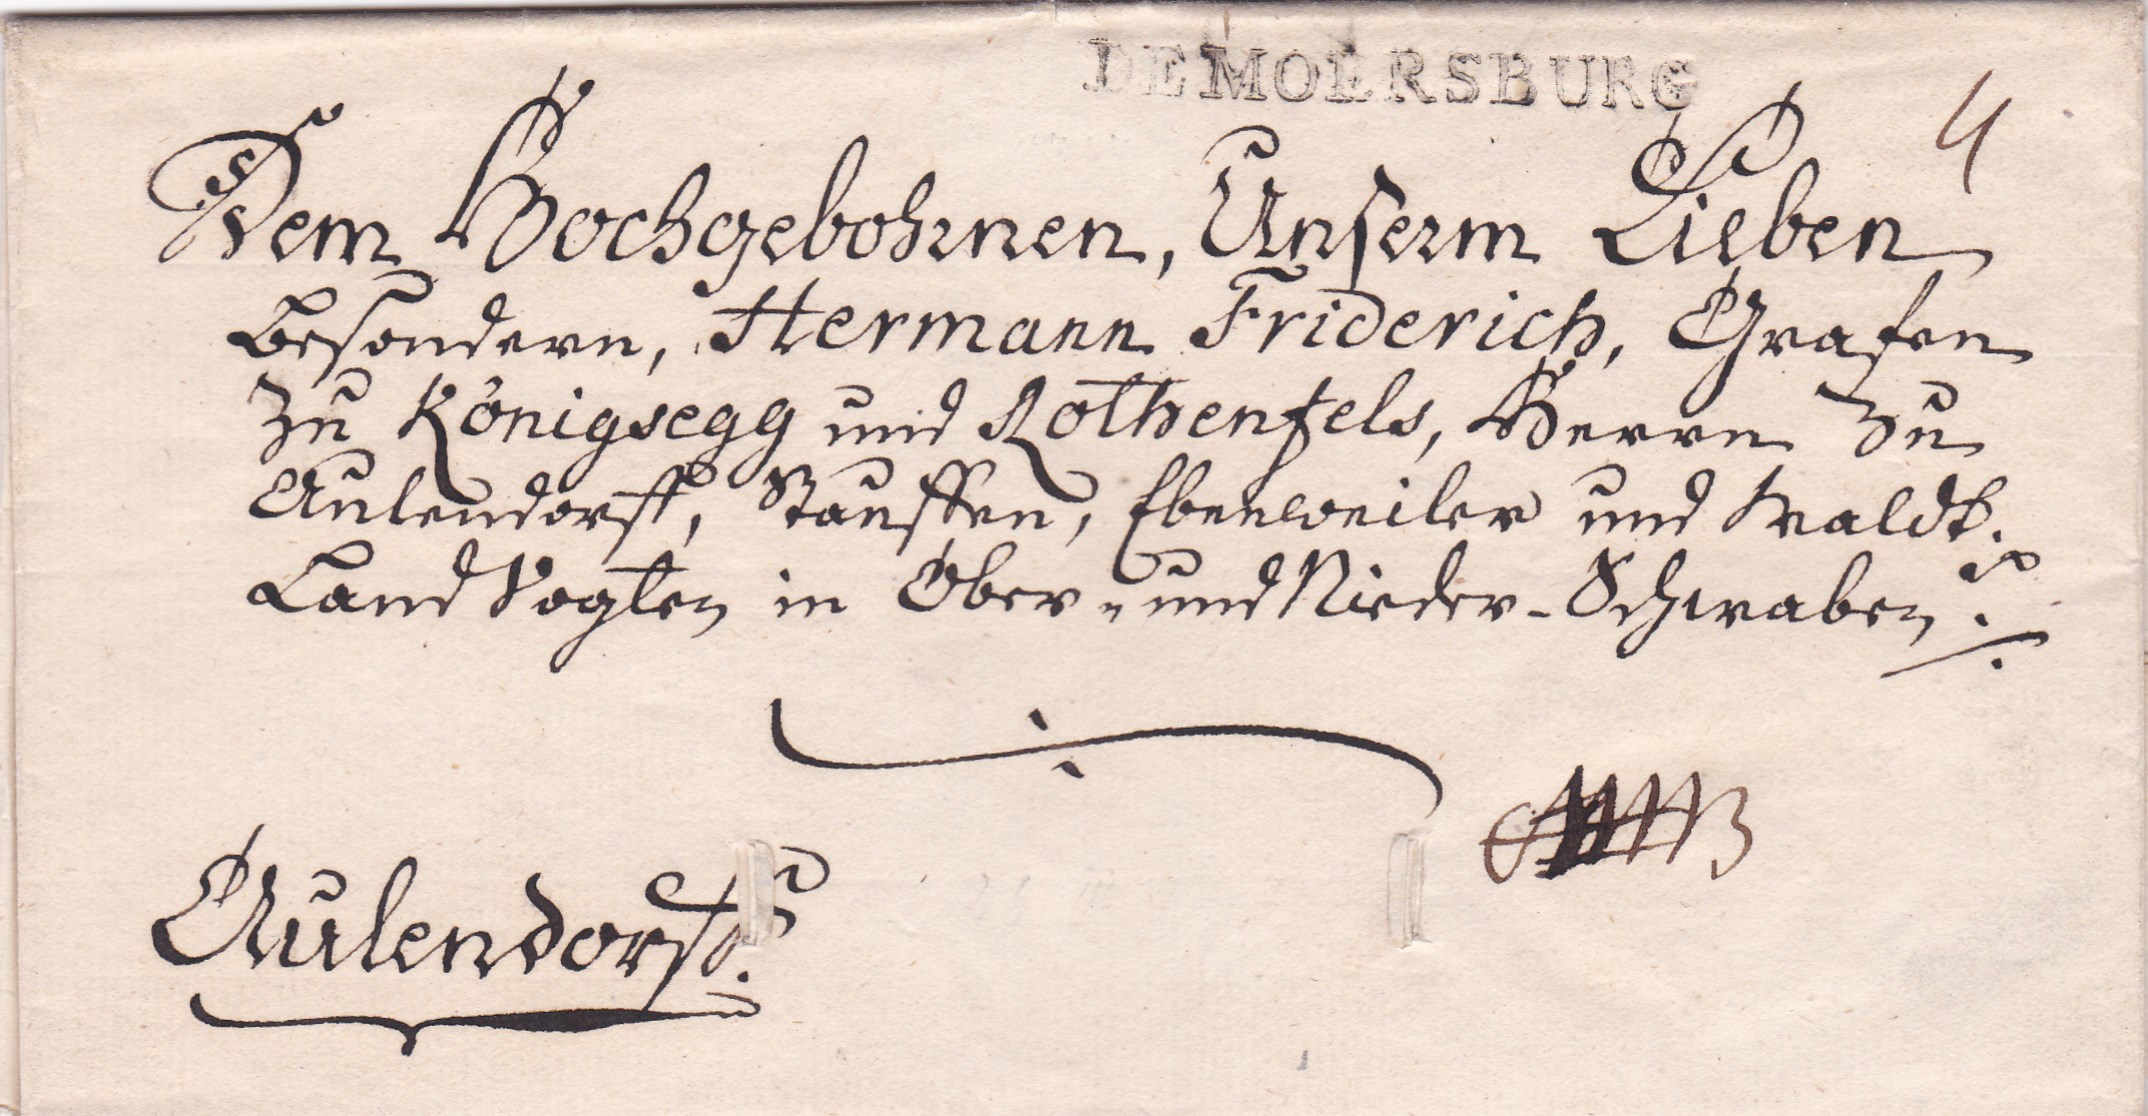 DE MOERSBURG
4
Dem Hochgebohrnen, Unserm Lieben
besondern, Hermann Friderich, Grafen
zu Königsegg und Rothenfels, Herrn zu
Aulendorff, Stauffen, Ebenweiler und Waldb.
Land Vogten in Ober- und Nieder-Schwaben
Aulendorff.